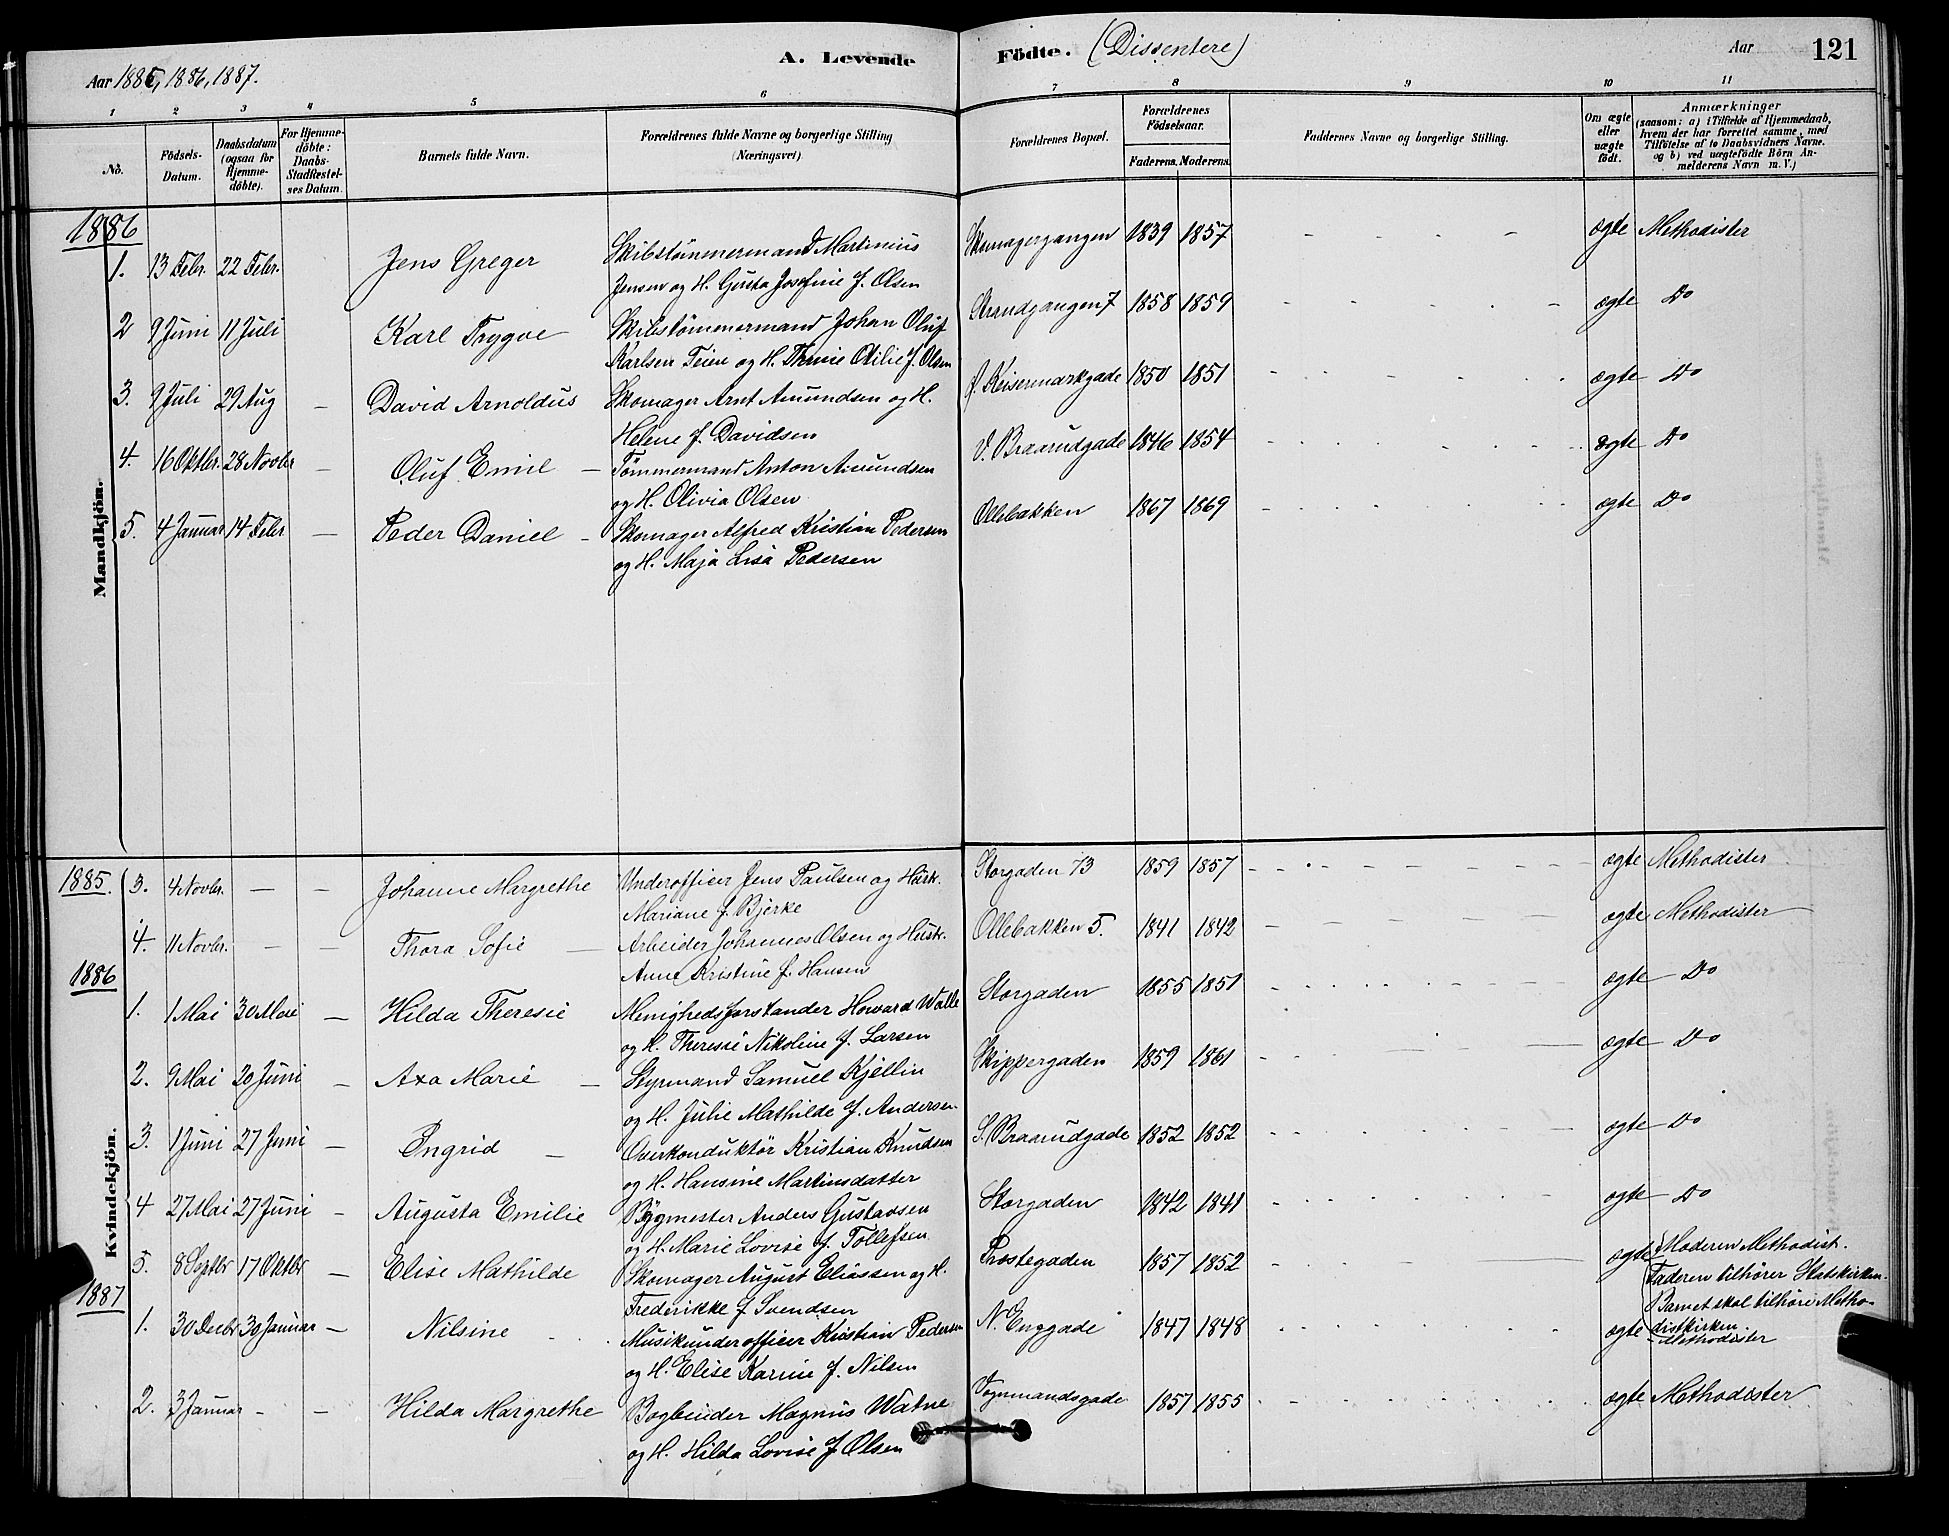 Aar 1885, 1886, 1887.
A. Levende Födte. (Dissentere)
Aar 121
1 2 3 4 5 6 7 8 9 10 11
No.
Födsels-Datum.
Daabsdatum (ogsaa for Hjemme-döbte).
For Hjemme-döbte: Daabs-Stadfæstel-ses Datum.
Barnets fulde Navn.
Forældrenes fulde Navne og borgerlige Stilling (Næringsvei)
Forældrenes Bopæl.
Forældrenes Födselsaar.
Faderens. Moderens.
Faddernes Navne og borgerlige Stilling.
Om ægte eller uægte födt.
Anmærkninger
(saasom: a) i Tilfælde af Hjemmedaab,
hvem der har forrettet samme, med
Tilföielse af to Daabsvidners Navne.
og b) ved uægtefödte Börn An-
melderens Navn m. V.)
Mandkjön.
1886
1. 13 Febr. 22 Febr. Jens Greger Skibstømmermand Martinius Skomagergangen 1839 1857 - - - - ægte Methodister
Jensen og H. Gusta Josefine f. Olsen
2 9 Juni 11 Juli Karl Trygve Skibstømmermand Johan Oluf Strandgangen 7 1858 1859 - - - - ægte Do
Karlsen Teien og H. Thrine Otilie f. Olsen
3. 9 Juli 29 Aug - David Arnoldus Skomager Arnt Amundsen og H. Ø. Keisemarkgade 1850 1851 - - - - ægte Do
Helene f. Davidsen
4. 16 Oktbr. 28 Novbr - Oluf Emil - Tømmermand Anton Amundsen V. Braarudgade 1846 1854 - - - - ægte Do
og H. Olivia Olsen
5. 4 Januar 14 Febr - Peder Daniel - Skomager Alfred Kristian Pedersen Ollebakken 1867 1869 - - - - ægte Do
og H. Maja Lisa Pedersen
Kvindekjön.
1885. 3. 4 Novbr. - - Johanne Margrethe Underofficer Jens Paulsen og Hustr. Storgaden 73 1859 1857 - - - - ægte Methodister
Mariane f. Bjerke
4. 11 Novbr. - - Thora Sofie - Arbeider Johannes Olsen og Hustr. Ollebakken 5. 1841 1842 - - - - ægte Methodister
Anne Kristine f. Hansen
1886
1. 1 Mai 30 Mai - Hilda Theresie Menighedsforstander Howard Walle Storgaden 1855 1851 - - - - ægte Do
og H. Theresie Nikoline f. Larsen
2. 9 Mai 20 Juni - Axa Marie - Styrmand Samuel Kjellin Skippergaden 1859 1861 - - - - ægte Do
og H. Julie Mathilde f. Andersen
3. 1 Juni 27 Juni - Ingrid - Overkonduktør Kristian Knudsen S. Braarudgade 1852 1852 - - - - ægte Do
og H. Hansine Martinsdatter
4 27 Mai 27 Juni - Augusta Emilie Bygmester Anders Gustavsen Storgaden 1842 1841 - - - - ægte Do
og H. Marie Lovise f. Tollefsen
5. 8 Septbr 17 Oktbr - Elise Mathilde Skomager August Eliassen og H. Prostegaden 1857 1852 - - - - ægte Moderen Methodist.
Frederikke f Svendsen Faderen tilhører Statskirken.
Barnet skal tilhøre Metho-
distkirken
1887
1. 30 Decbr 30 Januar - Nilsine - Musikunderofficer Kristian Pedersen N. Enggade 1847 1848 - - - - ægte Methodister
og H. Elise Karine f. Nilsen
2. 3 Januar - - Hilda Margrethe Bogbinder Magnus Watne Vognmandsgade 1857 1855 - - - - ægte Methodister
og H. Hilda Lovise f Olsen